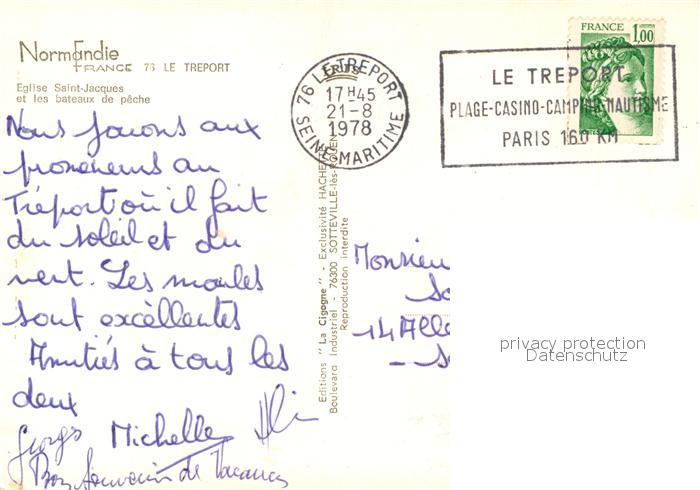 Normandie
FRANCE 76 LE TREPORT
Eglise Saint-Jacques
et les bateaux de pêche
Nous jouons aux
promeneurs au
Tréport où il fait
du soleil et du
vent. Les moules
sont excellentes
Amitiés à tous les
deux
Michelle
Bon Souvenir de Vacances
Editions "La Cigogne" - Exclusivité HACHETTE
Boulevard Industriel - 76300 SOTTEVILLE-lès-ROUEN
Reproduction interdite
76 LE TREPORT
17 H 45
21-8
1978
SEINE-MARITIME
FRANCE 1,00
LE TREPORT
PLAGE-CASINO-CAMPING-NAUTISME
PARIS 160 KM
Monsieur
14 Alle
privacy protection
Datenschutz